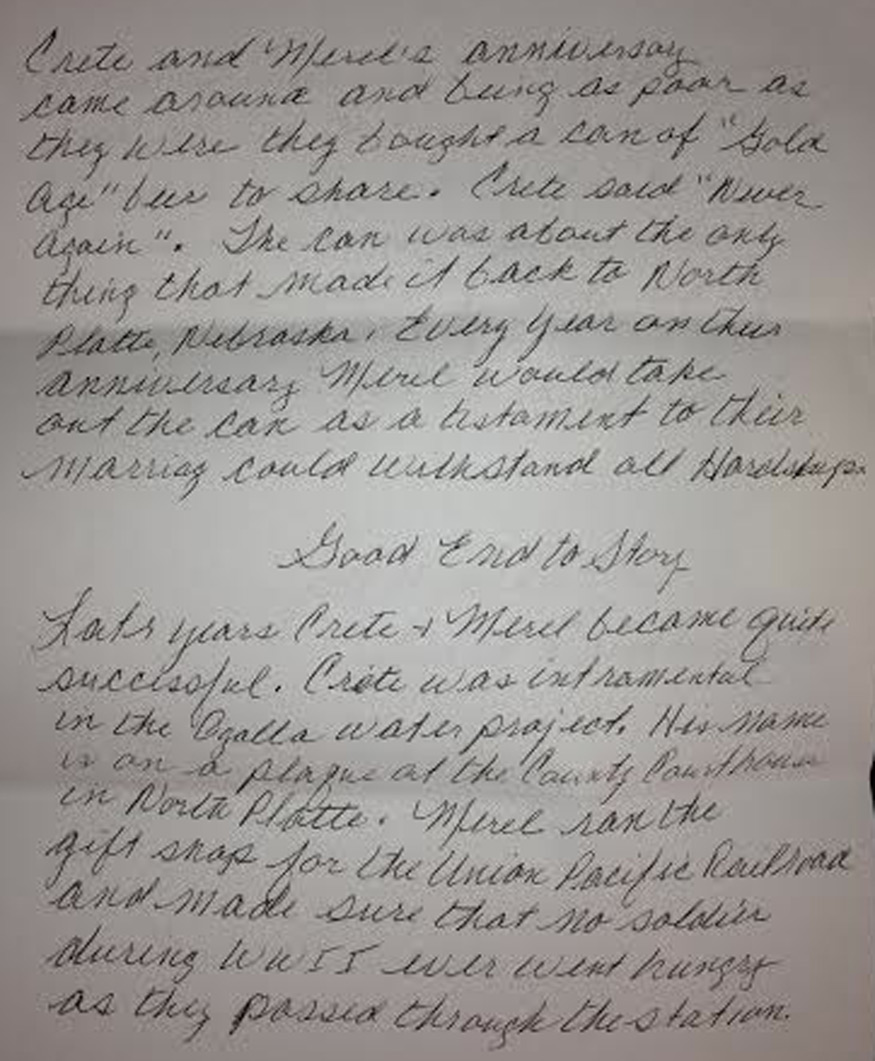 Crete and Merel's anniversay
came around and being as poor as
they were they bought a can of "Gold
Age" beer to share. Crete said "Never
Again". The can was about the only
thing that made it back to North
Platte, Nebraska. Every year on their
anniversary Merel would take
out the can as a testament to their
Marriag could withstand all Hardships.
Good End to Story
Later years Crete + Merel became quite
successful. Crete was intramental
in the Ogalla water project. His name
is on a plaque at the County Courthouse
in North Platte. Merel ran the
gift shop for the Union Pacific Railroad
and made sure that no soldier
during WWII ever went hungry
as they passed through the station.